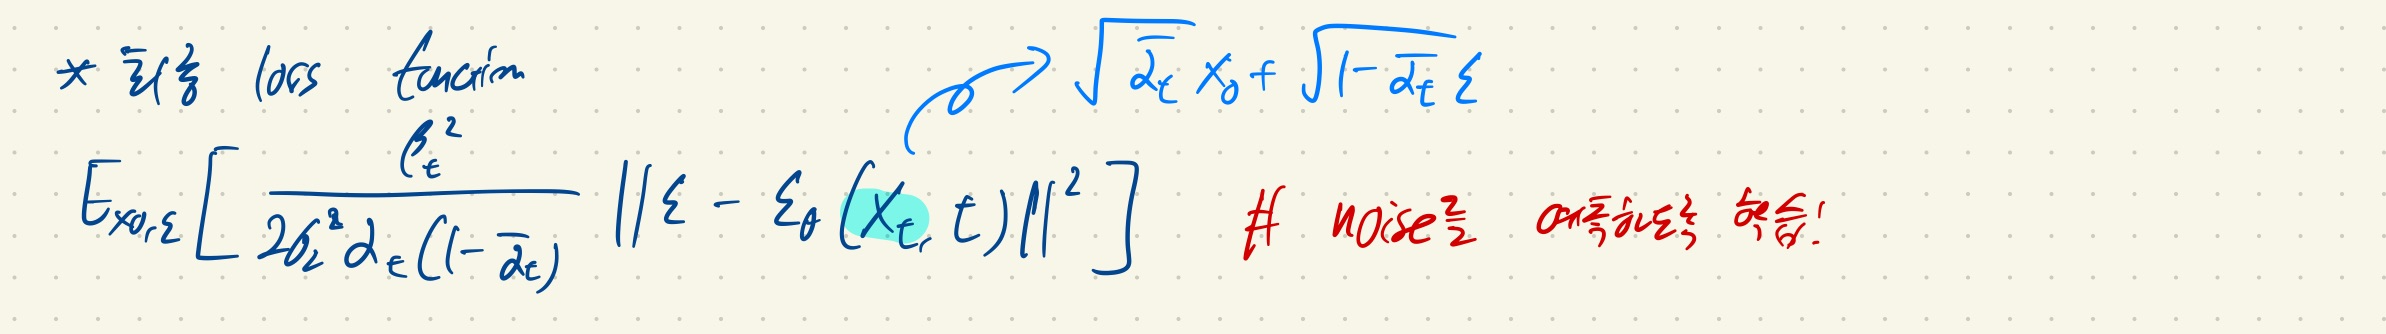 * 최종 loss function
√(ᾱ_t) x_0 + √(1-ᾱ_t) ε
E_{x_0,ε} [ β_t^2 / (2σ_t^2 α_t (1-ᾱ_t)) ||ε - ε_θ (x_t, t)||^2 ]
# noise를 예측하도록 학습!